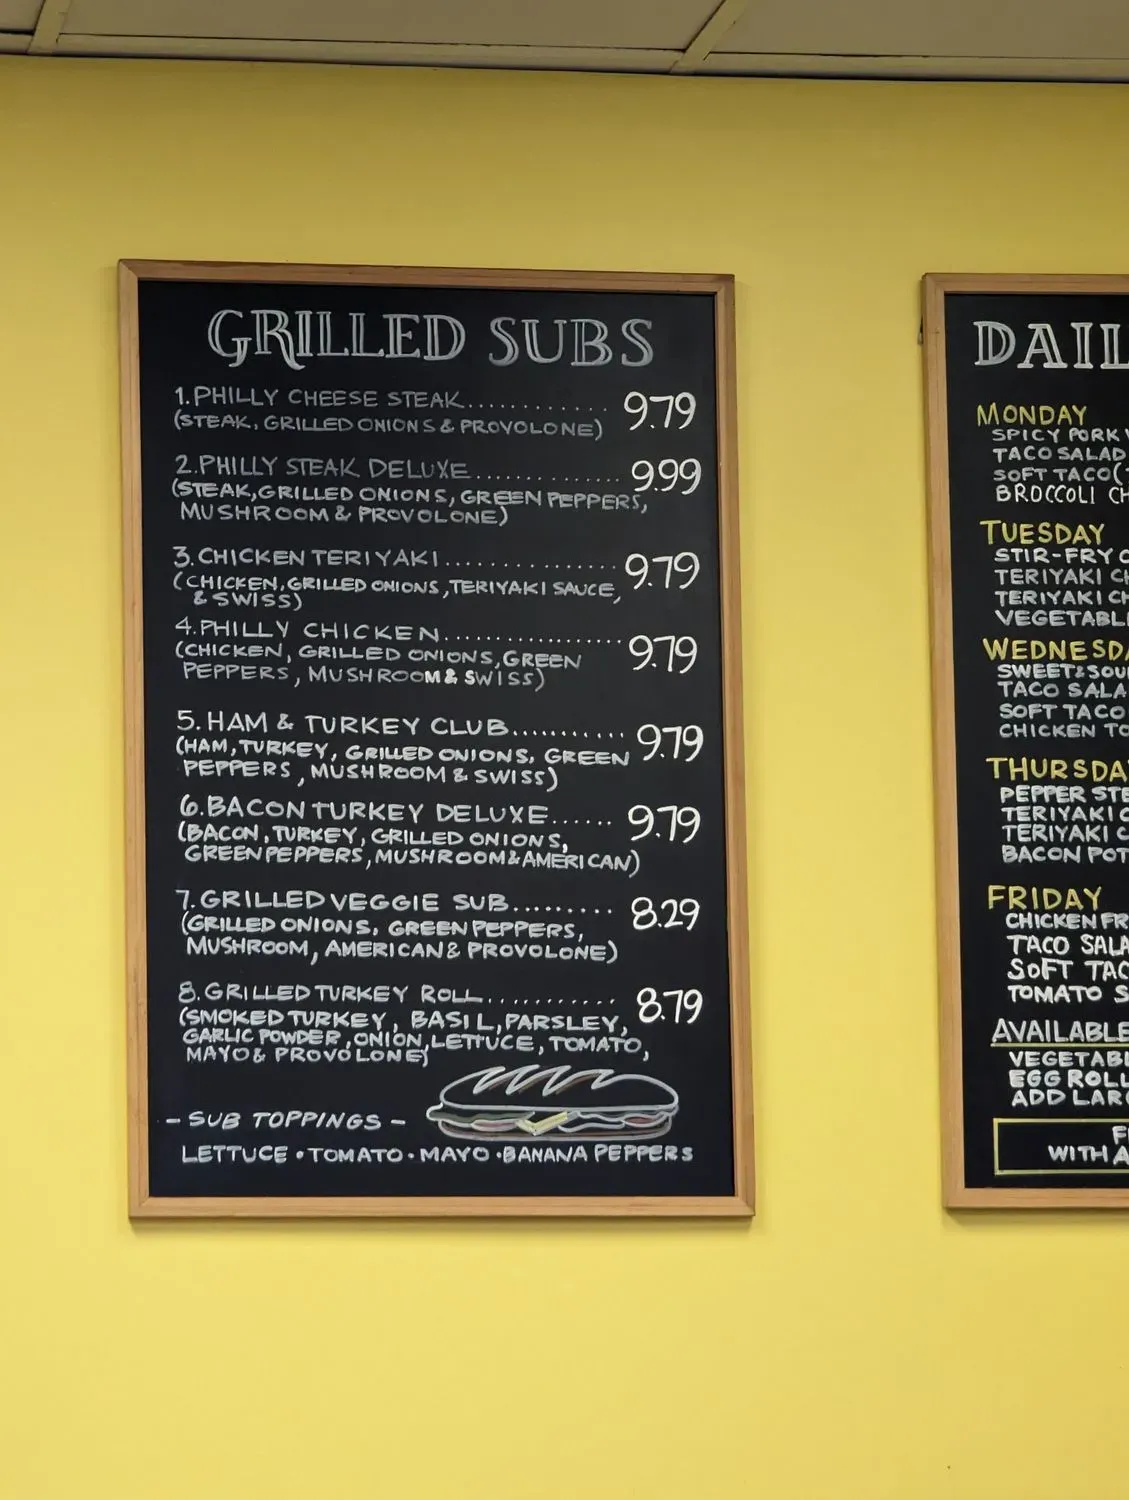 GRILLED SUBS
1. PHILLY CHEESE STEAK.......... 9.79
(STEAK, GRILLED ONIONS & PROVOLONE)
2. PHILLY STEAK DELUXE........... 9.99
(STEAK, GRILLED ONIONS, GREEN PEPPERS,
MUSHROOM & PROVOLONE)
3. CHICKEN TERIYAKI............... 9.79
(CHICKEN, GRILLED ONIONS, TERIYAKI SAUCE,
& SWISS)
4. PHILLY CHICKEN.................. 9.79
(CHICKEN, GRILLED ONIONS, GREEN
PEPPERS, MUSHROOM & SWISS)
5. HAM & TURKEY CLUB........... 9.79
(HAM, TURKEY, GRILLED ONIONS, GREEN
PEPPERS, MUSHROOM & SWISS)
6. BACON TURKEY DELUXE...... 9.79
(BACON, TURKEY, GRILLED ONIONS,
GREEN PEPPERS, MUSHROOM & AMERICAN)
7. GRILLED VEGGIE SUB......... 8.29
(GRILLED ONIONS, GREEN PEPPERS,
MUSHROOM, AMERICAN & PROVOLONE)
8. GRILLED TURKEY ROLL........... 8.79
(SMOKED TURKEY, BASIL, PARSLEY,
GARLIC POWDER, ONION, LETTUCE, TOMATO,
MAYO & PROVOLONE)
- SUB TOPPINGS -
LETTUCE • TOMATO • MAYO • BANANA PEPPERS
DAIL
MONDAY
SPICY PORK
TACO SALAD
SOFT TACO (
BROCCOLI CH
TUESDAY
STIR-FRY
TERIYAKI CH
TERIYAKI CH
VEGETABL
WEDNESDA
SWEET & SOU
TACO SALA
SOFT TACO
CHICKEN TO
THURSDA
PEPPER STE
TERIYAKI C
TERIYAKI C
BACON POT
FRIDAY
CHICKEN FR
TACO SALA
SOFT TAC
TOMATO S
AVAILABLE
VEGETABL
EGG ROLL
ADD LARG
F
WITH A